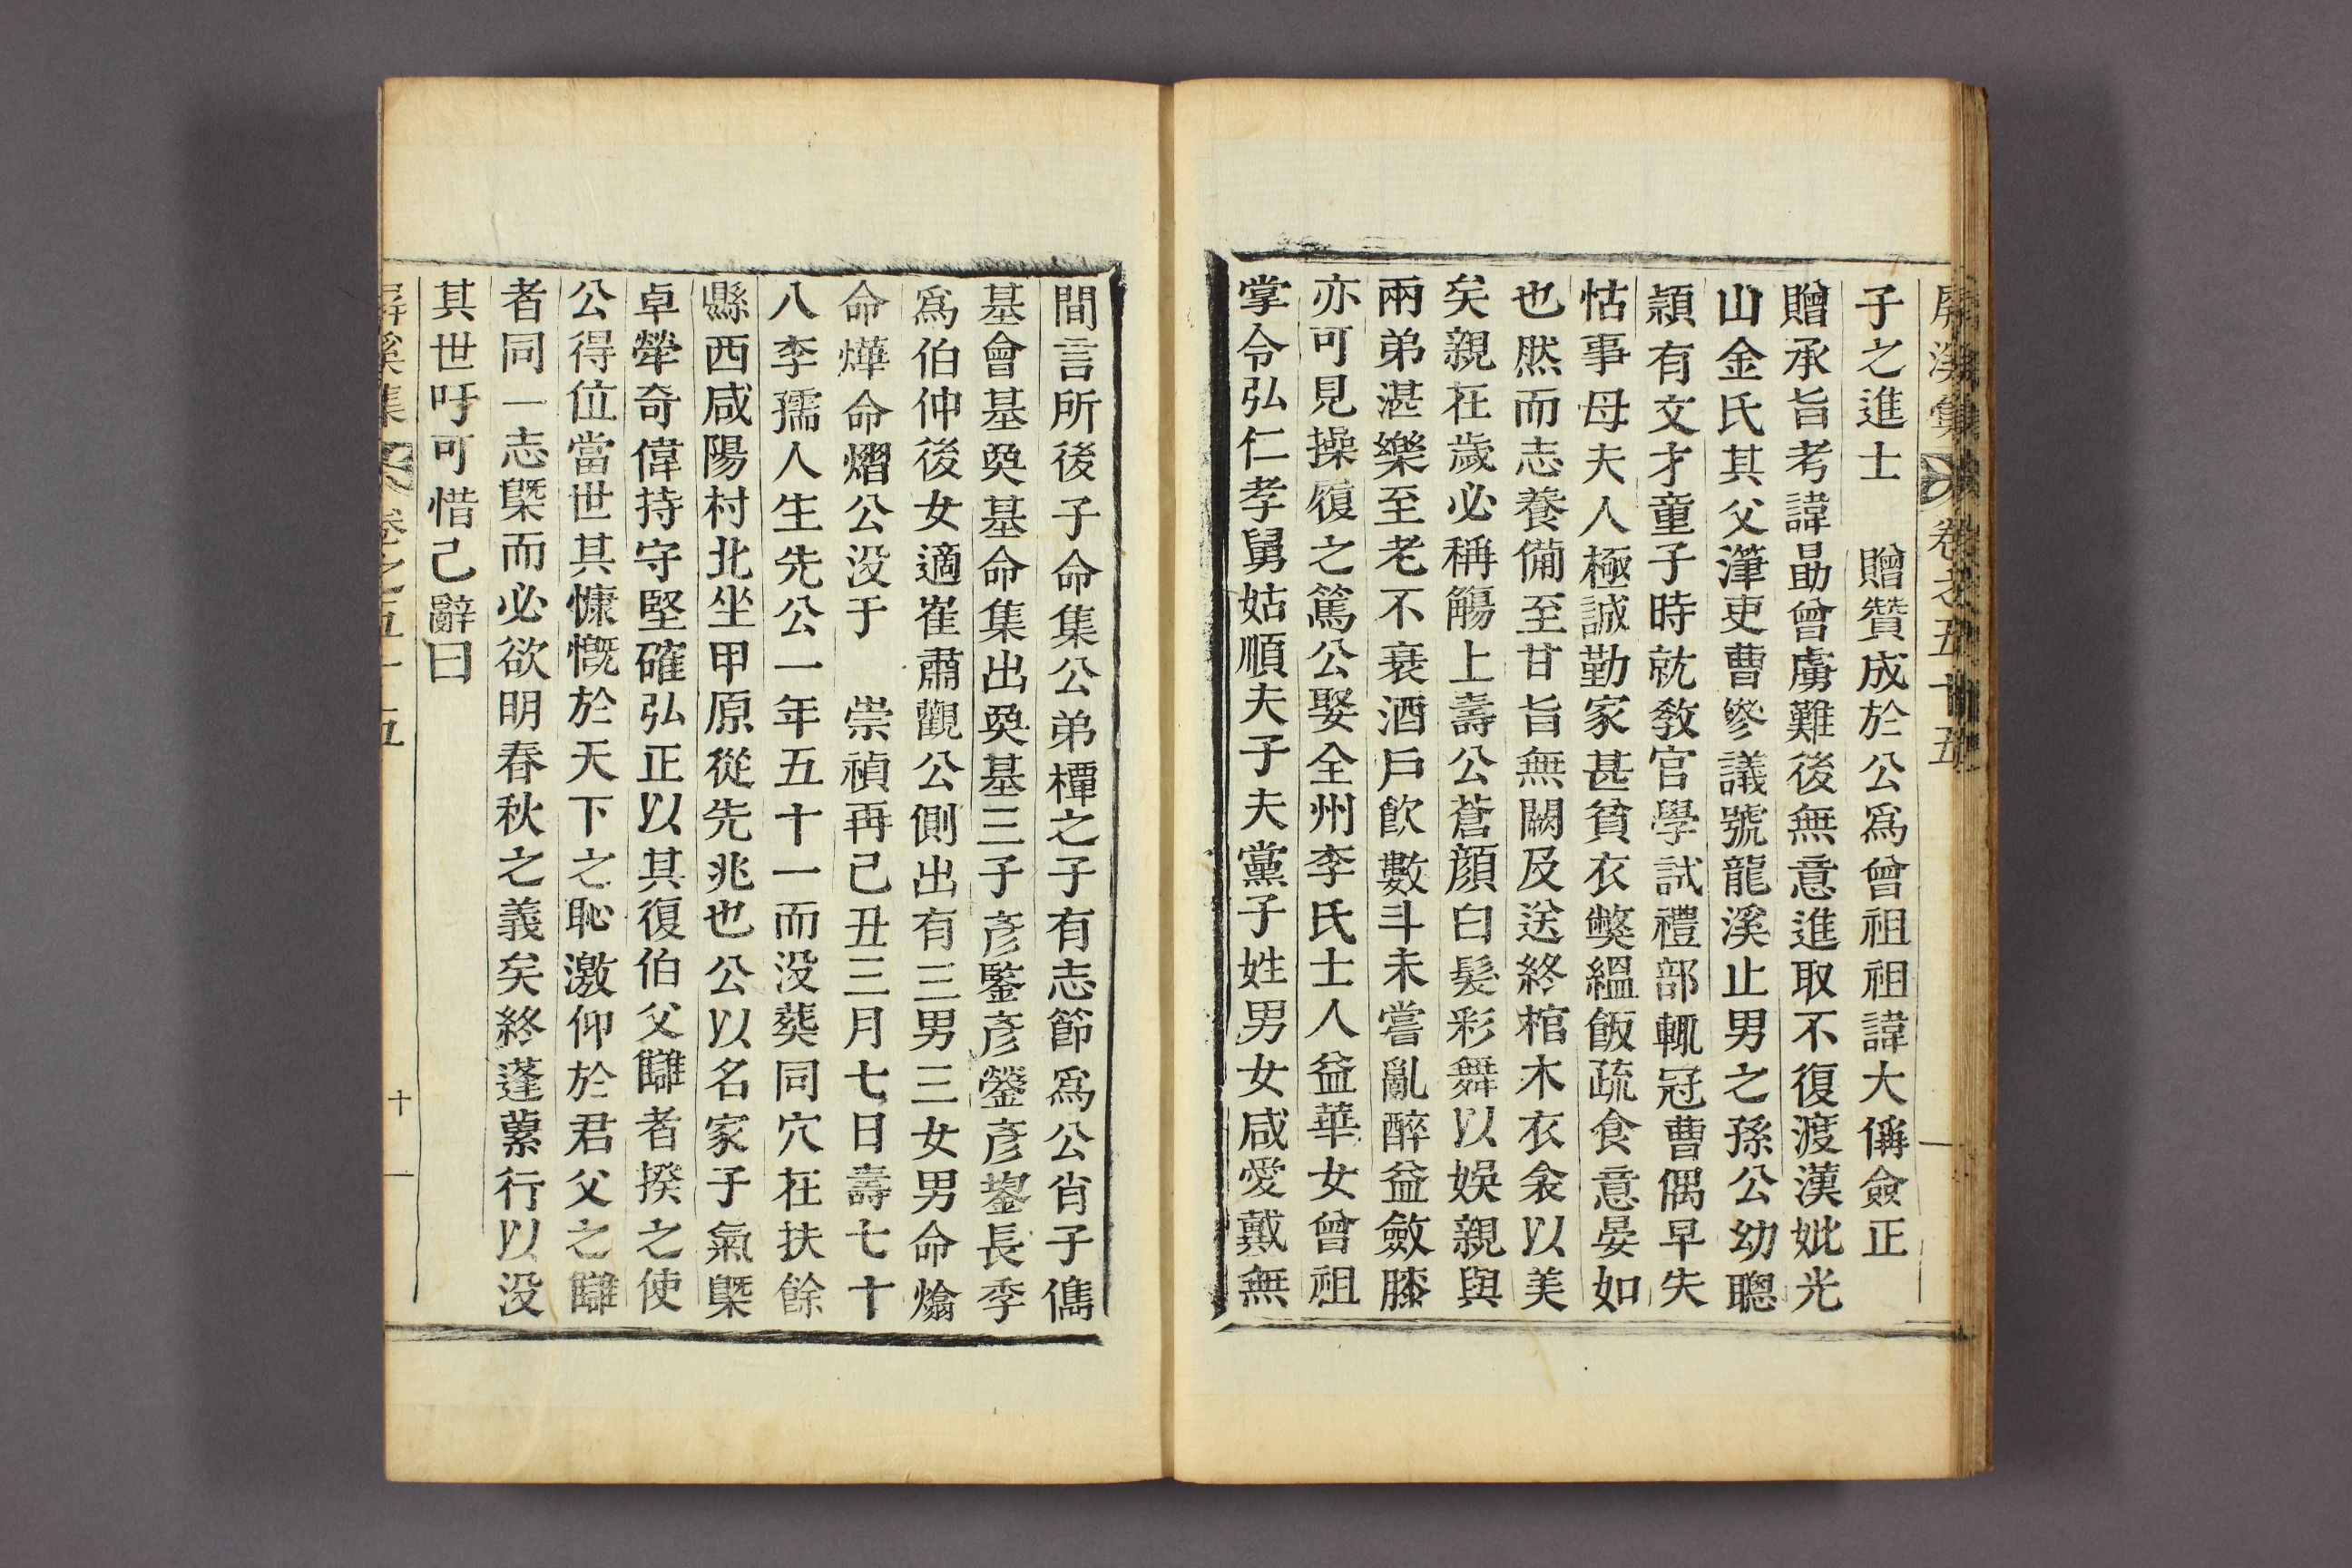 屛溪集 卷之五十五
子之進士 贈贊成於公爲曾祖祖諱大偁僉正
贈承旨考諱勗曾虜難後無意進取不復渡漢妣光
山金氏其父𤀹吏曹參議號龍溪止男之孫公幼聰
穎有文才童子時就敎官學試禮部輒冠曹偶早失
怙事母夫人極誠勤家甚貧衣獘縕飯疏食意晏如
也然而志養備至甘旨無闕及送終棺木衣衾以美
矣親在歲必稱觴上壽公蒼顔白髮彩舞以娛親與
兩弟湛樂至老不衰酒戶飮數斗未嘗亂醉益斂膝
亦可見操履之篤公娶全州李氏士人益華女曾祖
掌令弘仁孝舅姑順夫子夫黨子姓男女咸愛戴無
間言所後子命集公弟橝之子有志節爲公肖子儁
基會基奐基命集出奐基三子彦鑒彦鎣彦鋆長季
爲伯仲後女適崔肅觀公側出有三男三女男命爚
命燁命熠公没于 崇禎再己丑三月七日壽七十
八李孺人生先公一年五十一而没葬同穴在扶餘
縣西咸陽村北坐甲原從先兆也公以名家子氣槩
卓犖奇偉持守堅確弘正以其復伯父讎者揆之使
公得位當世其慷慨於天下之恥激仰於君父之讎
者同一志槩而必欲明春秋之義矣終蓬蔂行以没
其世吁可惜已辭曰
屛溪集 卷之五十五 十一